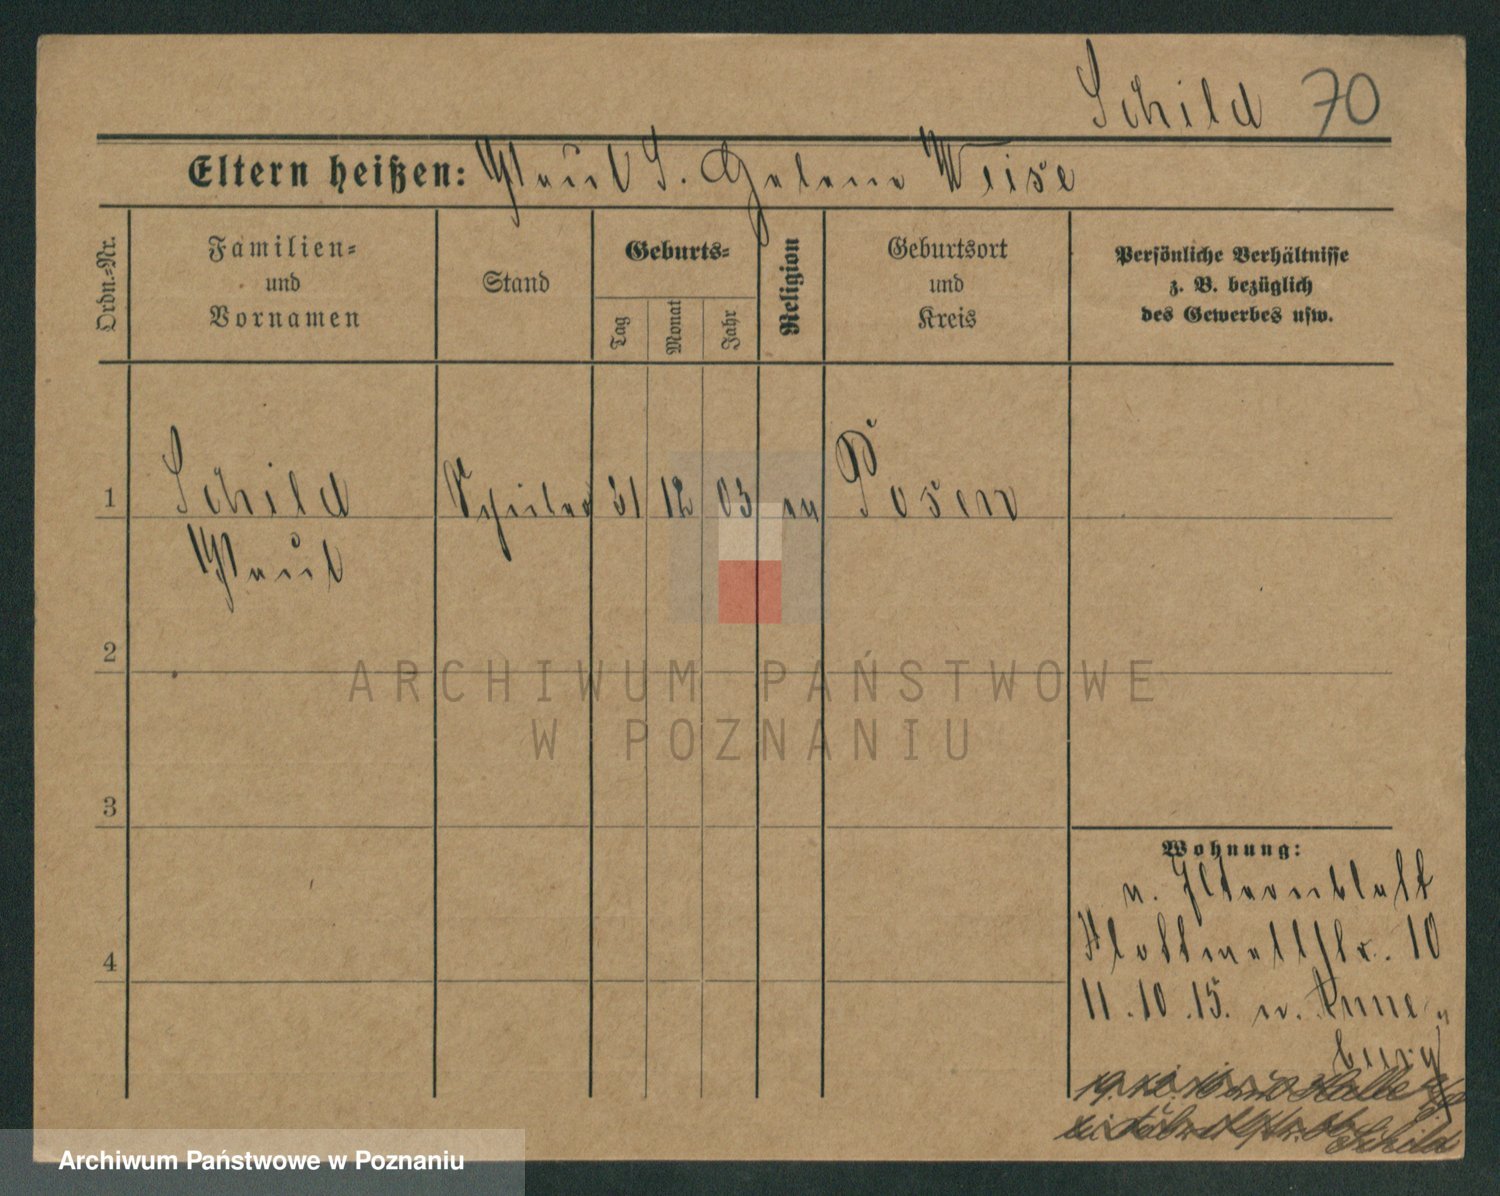 Schild 70
Eltern heißen: Paul S. Helene Weise
Ordn.=Nr.
Familien=
und
Vornamen
Stand
Geburts=
Tag
Monat
Jahr
Religion
Geburtsort
und
Kreis
Persönliche Verhältnisse
z. B. bezüglich
des Gewerbes usw.
1 Schild Schüler 31 12 03 ev Posen
Paul
2
ARCHIWUM PAŃSTWOWE
W POZNANIU
3
Wohnung:
n. Elternblatt
str. 10
4
11.10.15. n. Anne-
burg
Schild
Archiwum Państwowe w Poznaniu